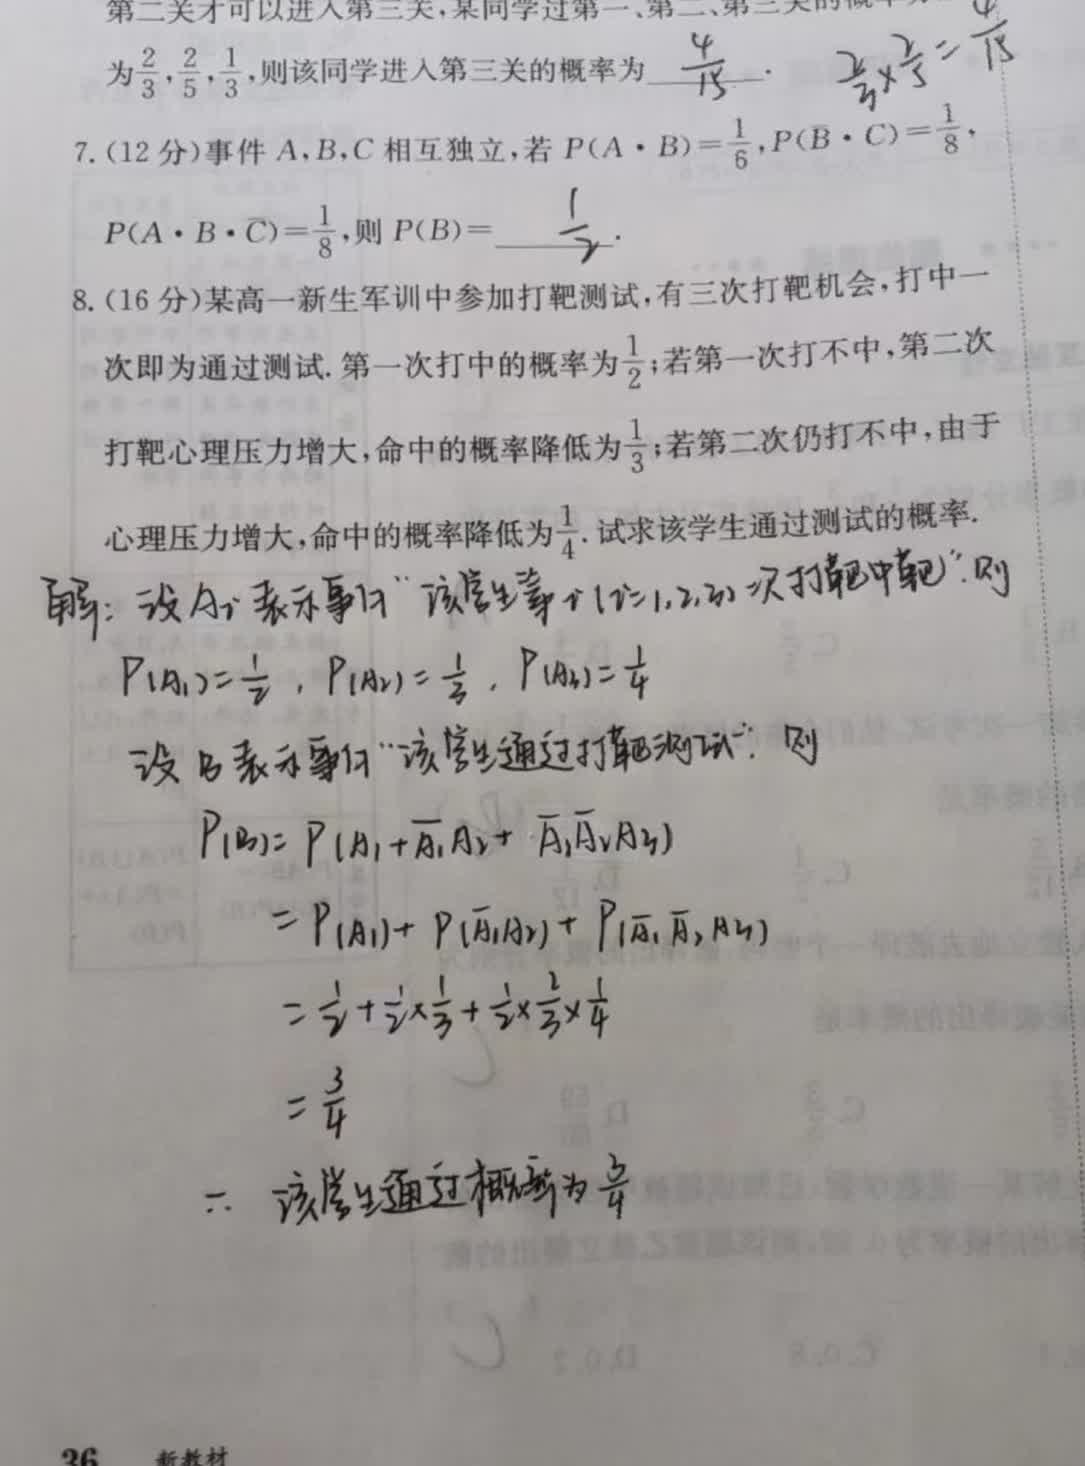 第二关才可以进入第三关,某同学过第一、第二、第三关的概率
为2/3,2/5,1/3,则该同学进入第三关的概率为 4/15 . 2/3×2/5=4/15
7.(12分)事件A,B,C相互独立,若P(A·B)=1/6,P(B̅·C)=1/8,
P(A·B·C̅)=1/8,则P(B)= 1/2 .
8.(16分)某高一新生军训中参加打靶测试,有三次打靶机会,打中一
次即为通过测试.第一次打中的概率为1/2;若第一次打不中,第二次
打靶心理压力增大,命中的概率降低为1/3;若第二次仍打不中,由于
心理压力增大,命中的概率降低为1/4.试求该学生通过测试的概率.
解:设Ai表示事件“该学生第i(i=1,2,3)次打靶中靶”.则
P(A₁)=1/2,P(A₂)=1/3,P(A₃)=1/4
设B表示事件“该学生通过打靶测试”.则
P(B)=P(A₁+A̅₁A₂+A̅₁A̅₂A₃)
=P(A₁)+P(A̅₁A₂)+P(A̅₁A̅₂A₃)
=1/2+1/2×1/3+1/2×2/3×1/4
=3/4
∴ 该学生通过概率为3/4
36 新教材